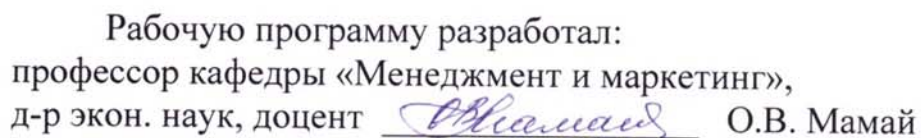 Рабочую программу разработал:
профессор кафедры «Менеджмент и маркетинг»,
д-р экон. наук, доцент ОВМамай О.В. Мамай